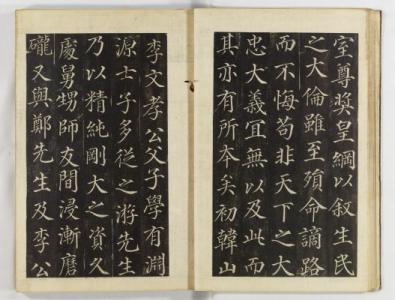 室尊奬皇綱以叙生民
之大倫雖至殞命謫路
而不悔苟非天下之大
忠大義冝無以及此而
其亦有所本矣初韓山
李文孝公父子學有淵
源士子多從之游先生
乃以精純剛大之資久
處舅甥師友間浸漸磨
礲又與鄭先生及李公